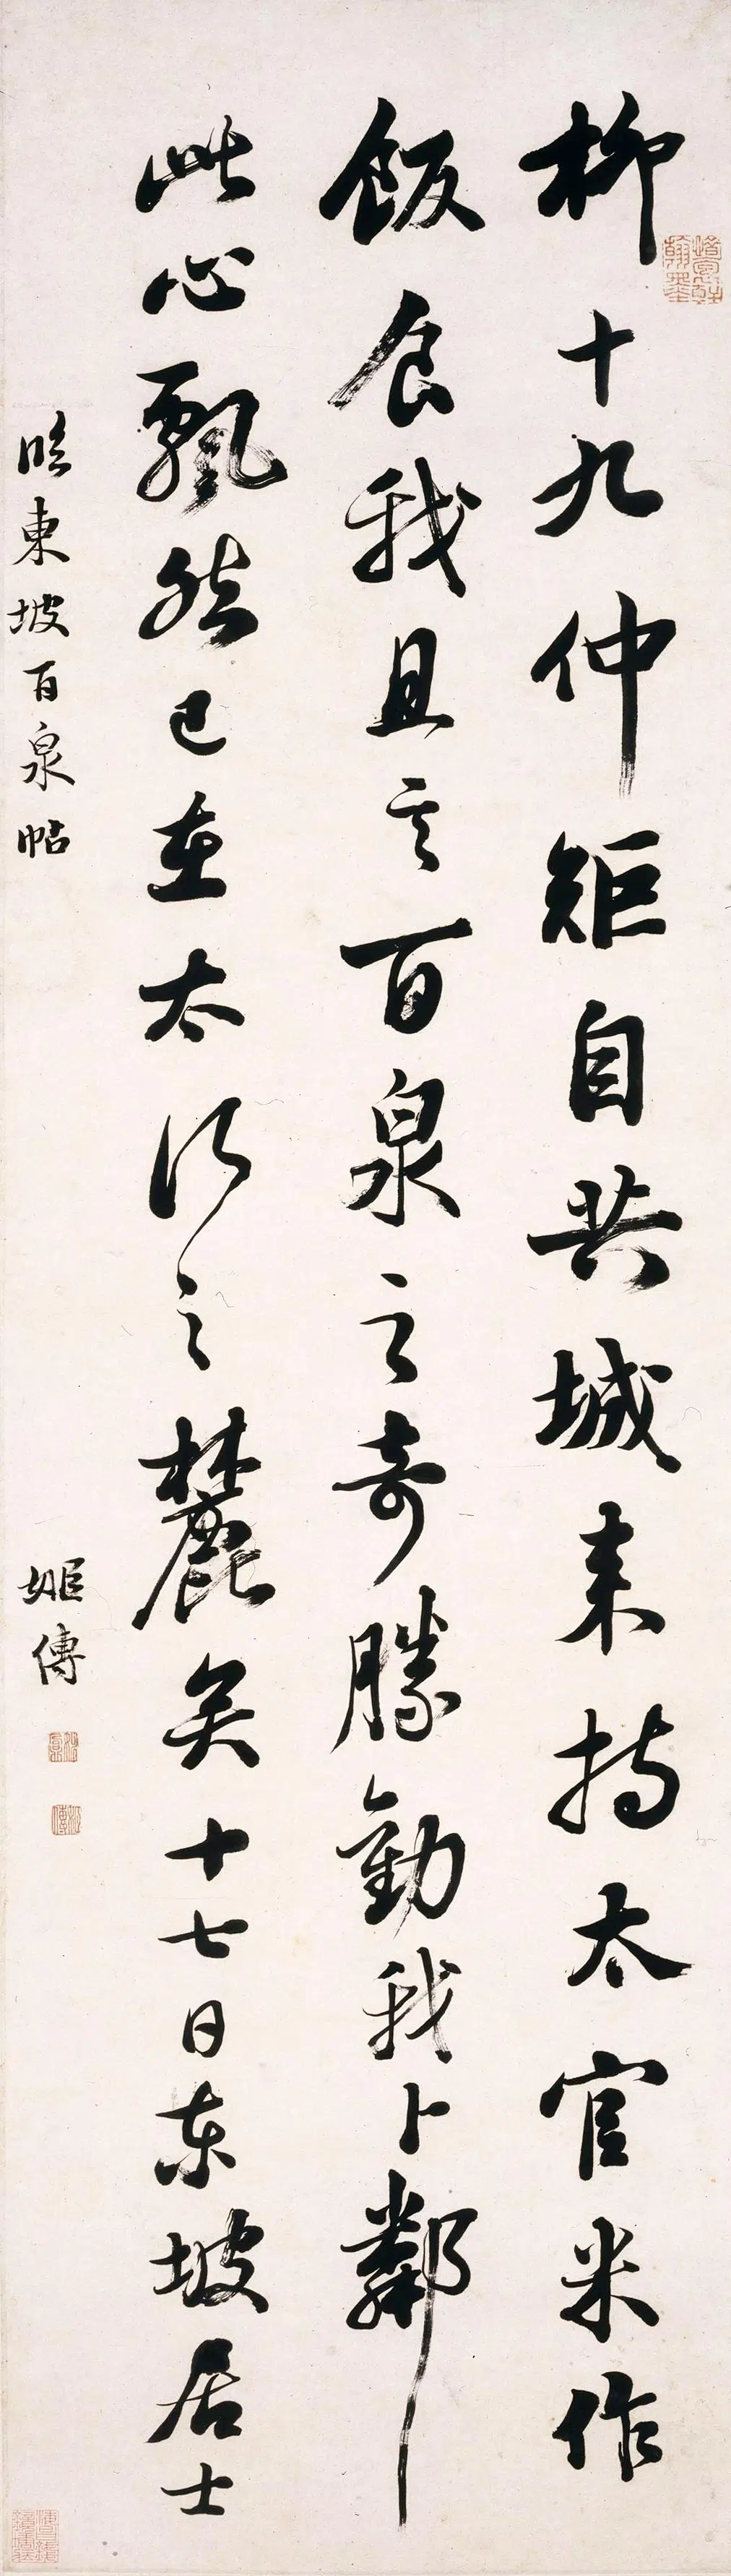 柳十九仲矩自共城来持太官米作
飯食我且言百泉之奇勝勸我卜鄰
此心飄然已在太行之麓矣十七日东坡居士
臨東坡百泉帖
姬傳